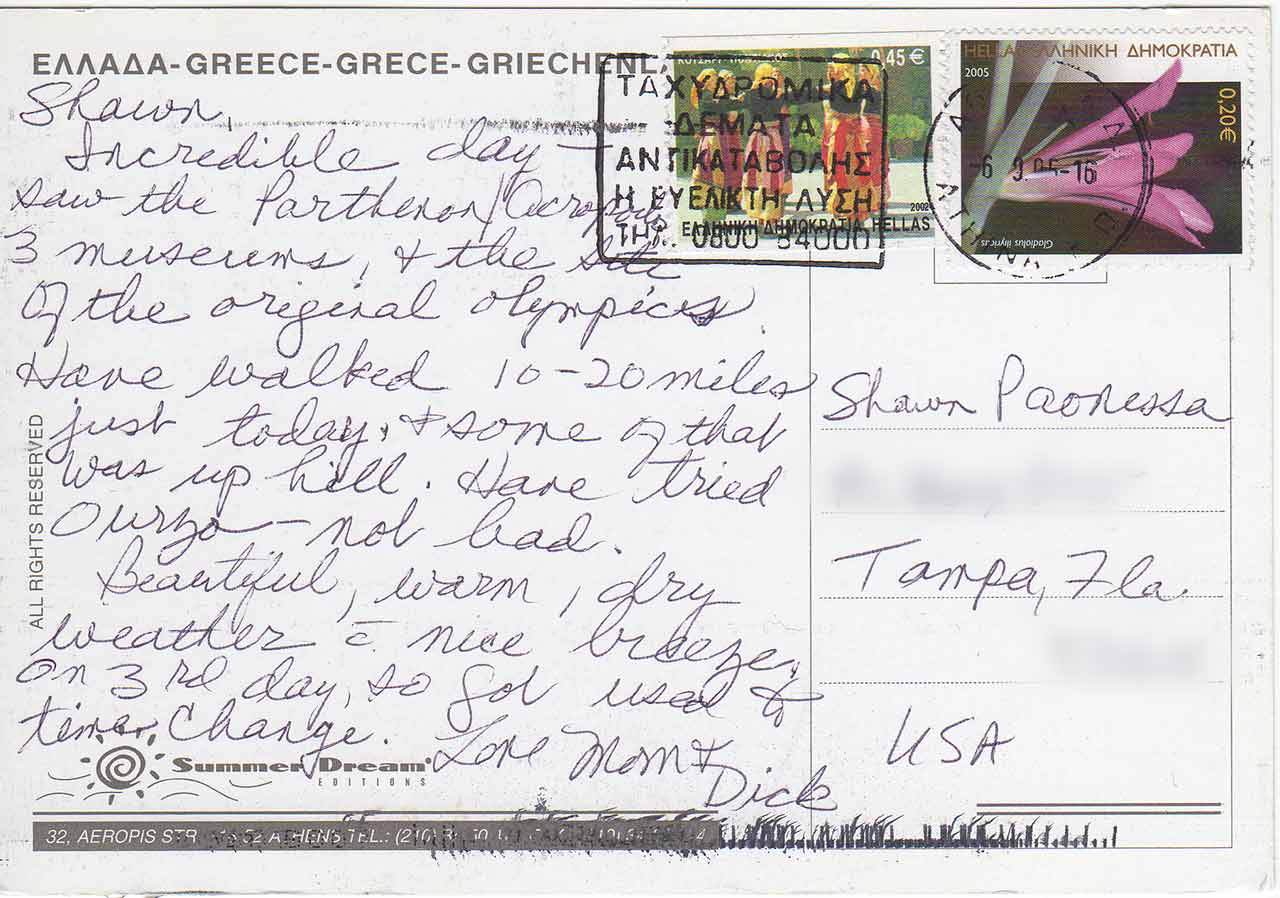 ΕΛΛΑΔΑ-GREECE-GRECE-GRIECHENLA
Shawn,
Incredible day –
saw the Parthenon/Acropolis
3 museums, & the site
of the original olympics.
Have walked 10-20 miles
just today, & some of that
was up hill. Have tried
Ourzo – not bad.
Beautiful, warm, dry
weather c̄ nice breeze,
on 3rd day, so got used to
time change. Love Mom &
Dick
ALL RIGHTS RESERVED
Summer Dream
EDITIONS
32, AEROPIS STR. ATHENS TEL.: (210)
0,45 €
2002
ΕΛΛΗΝΙΚΗ ΔΗΜΟΚΡΑΤΙΑ HELLAS
ΤΑΧΥΔΡΟΜΙΚΑ
ΔΕΜΑΤΑ
ΑΝΤΙΚΑΤΑΒΟΛΗΣ
Η ΕΥΕΛΙΚΤΗ ΛΥΣΗ
ΤΗΛ. 0800 34000
HELLAS ΕΛΛΗΝΙΚΗ ΔΗΜΟΚΡΑΤΙΑ
2005
0,20€
Gladiolus illyricus
-6 9.05-16
Shawn Paonessa
Tampa, Fla
USA